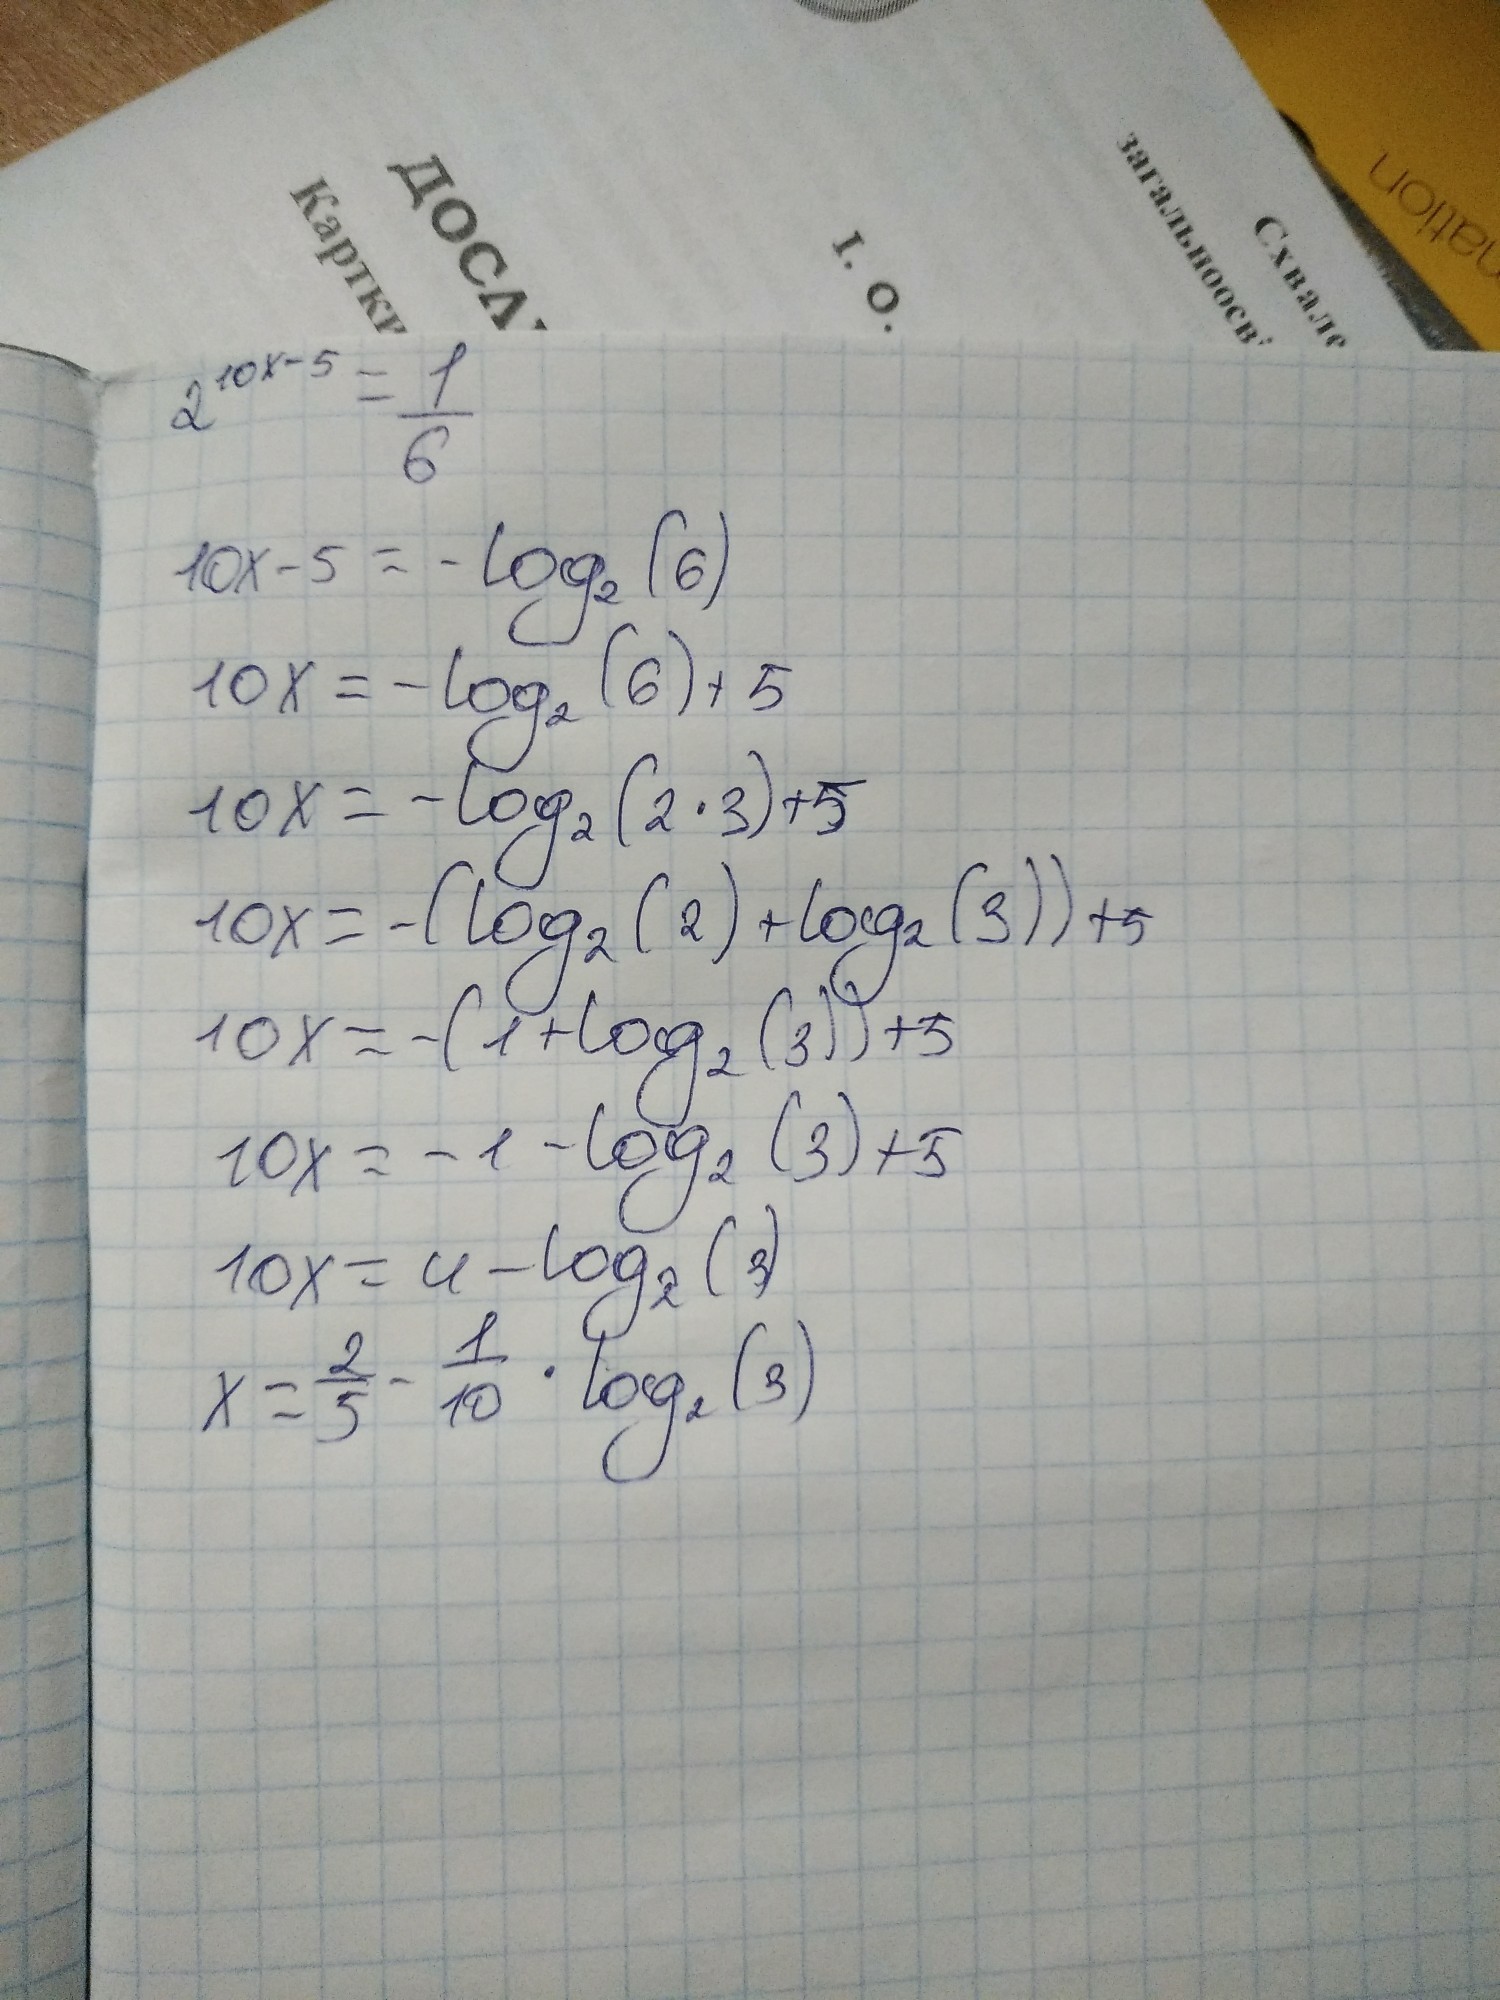 ДОСЛ
Картки
І. О.
Схвале
загальноосві
nation
2^{10x-5} = \frac{1}{6}
10x-5 = -log₂(6)
10x = -log₂(6)+5
10x = -log₂(2·3)+5
10x = -(log₂(2)+log₂(3))+5
10x = -(1+log₂(3))+5
10x = -1-log₂(3)+5
10x = 4-log₂(3)
x = \frac{2}{5} - \frac{1}{10} · log₂(3)